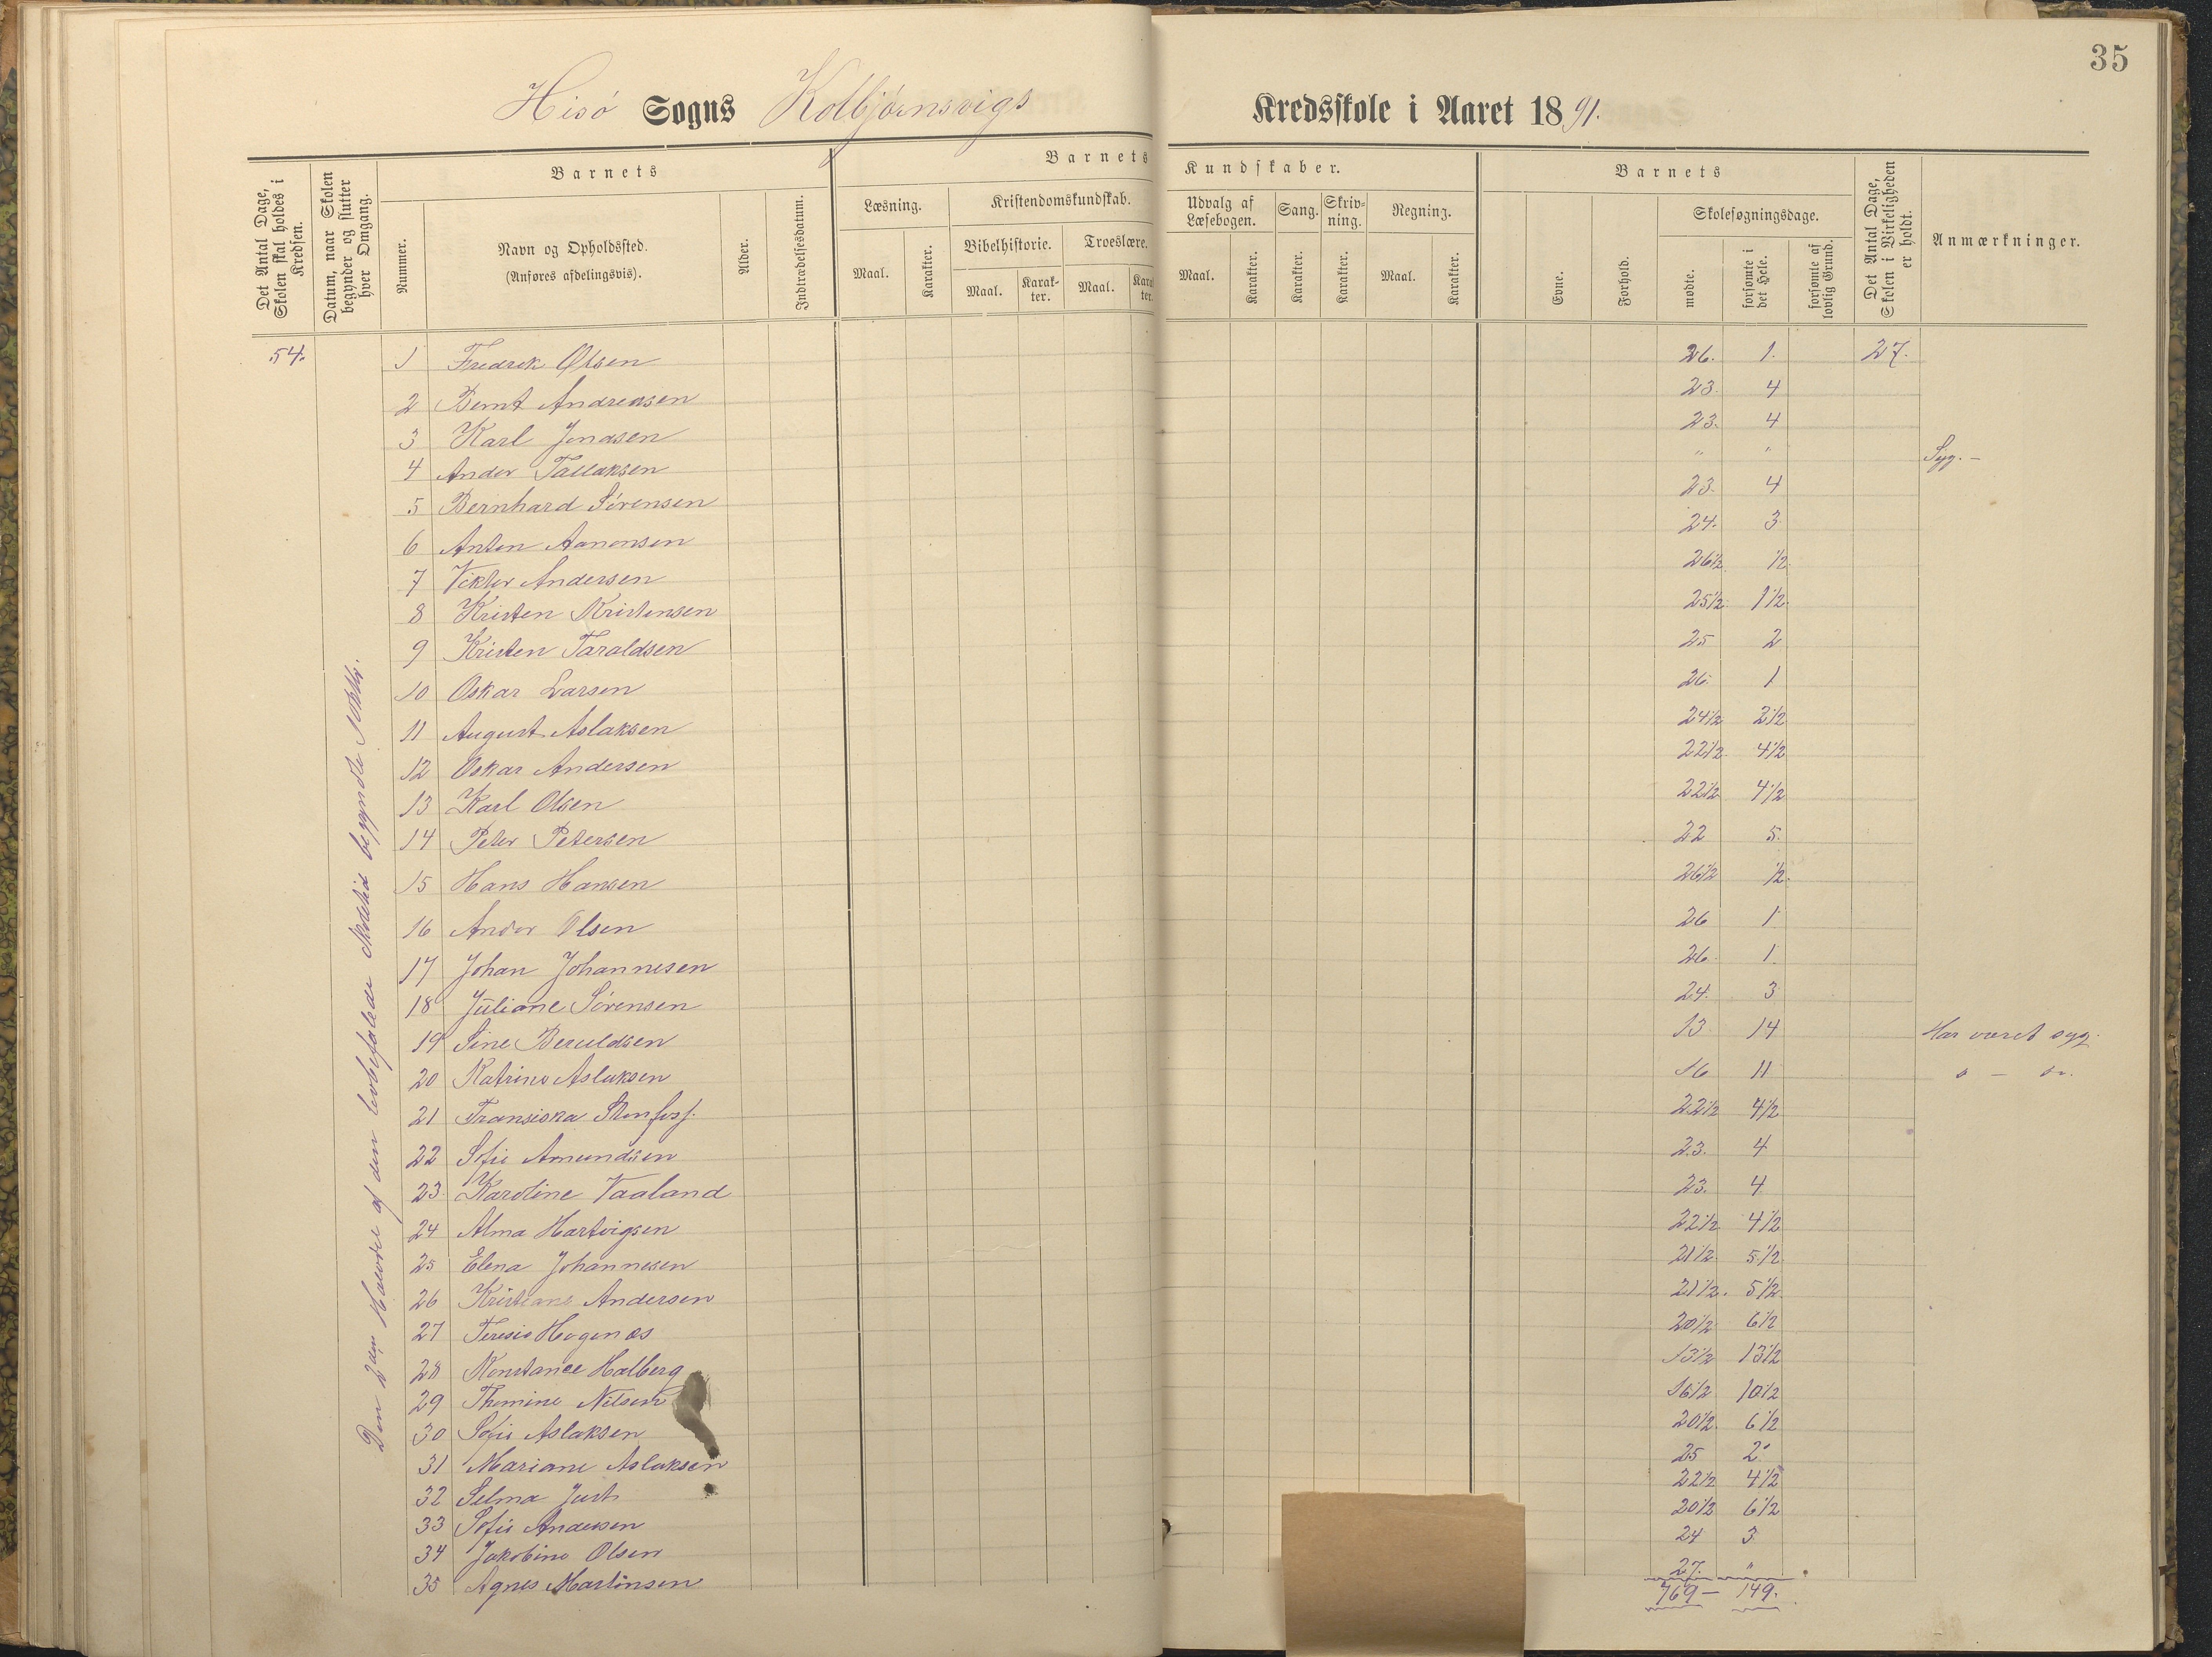 35
Hisö Sogns Kolbjørnsvigs Kredsskole i Aaret 1891.
Det Antal Dage, Skolen skal holdes i Kredsen.
Datum, naar Skolen begynder og slutter hver Omgang.
Nummer.
Barnets
Navn og Opholdssted.
(Anføres afdelingsvis).
Alder.
Indtrædelsesdatum.
Barnets Kundskaber.
Læsning.
Maal. Karakter.
Kristendomskundskab.
Bibelhistorie. Troeslære.
Maal. Karakter. Maal. Karakter.
Udvalg af Læsebogen.
Maal. Karakter.
Sang.
Karakter.
Skrivning.
Karakter.
Regning.
Maal. Karakter.
Barnets
Evne.
Forhold.
Skolesøgningsdage.
mødte.
forsømte i det Hele.
forsømte af lovlig Grund.
Det Antal Dage, Skolen i Virkeligheden er holdt.
Anmærkninger.
54. 1 Fredrik Olsen 26. 1. 27.
2 Bernt Andreasen 23. 4
3 Karl Jonasen 23. 4
4 Andor Tallaksen " " Syg. –
5 Bernhard Sörensen 23. 4
6 Anton Aanonsen 24. 3
7 Viktor Andersen 26 1/2 1/2
8 Kristen Kristensen 25 1/2 1 1/2
9 Kristen Taraldsen 25 2
10 Oskar Larsen 26. 1
11 August Aslaksen 24 1/2 2 1/2
12 Oskar Andersen 22 1/2 4 1/2
13 Karl Olsen 22 1/2 4 1/2
14 Peter Petersen 22 5.
15 Hans Hansen 26 1/2 1/2.
16 Andor Olsen 26 1
17 Johan Johannesen 26. 1.
18 Juliane Sörensen 24. 3
19 Sine Beruldsen 13 14 Har været syg.
20 Katrine Aslaksen 16 11
21 Fransiska 22 1/2 4 1/2
22 Sofie Amundsen 23. 4
23. Karoline Vaaland 23. 4
24 Alma Hartvigsen 22 1/2 4 1/2
25 Elena Johannesen 21 1/2 5 1/2
26 Kristiane Andersen 21 1/2. 5 1/2
27 Teresie 20 1/2 6 1/2
28 Konstance Halberg 13 1/2 13 1/2
29 Thomine Nilsen 16 1/2 10 1/2
30 Sofie Aslaksen 20 1/2 6 1/2
31 Mariane Aslaksen 25 2
32 Selma Just 22 1/2 4 1/2
33 Sofie Andersen 20 1/2 6 1/2
34 Jakobine Olsen 24 3
35 Agnes Martinsen 27. "
769 – 149.
Den 2den Halvdel af den lovbefalede Skoletid begyndte